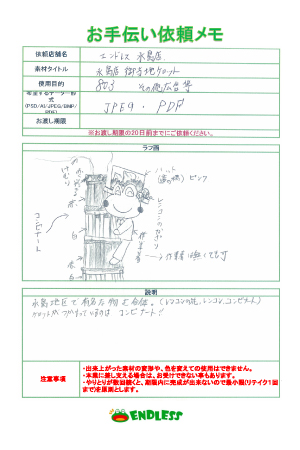 お手伝い依頼メモ
依頼店舗名
エンドレス 水島店
素材タイトル
水島店 御当地ケロット
使用目的
その他広告等
希望するデータ形式
(PSD/AI/JPEG/BMP/PDF)
JPEG・PDF
お渡し期限
※お渡し期限の20日前までにご依頼ください。
ラフ画
ピンク
レンコンの
コンビナート
赤
白
赤
白
赤
説明
水島地区で有名な物を合体。(レンコンの花、レンコン、コンビナート)
ケロットがつかまっているのは コンビナート!!
注意事項
・出来上がった素材の変形や、色を変えての使用はできません。
・本業に差し支える場合は、お受けできない事もあります。
・やりとりが数回続くと、期限内に完成が出来ないので最小限(リテイク1回まで)を原則とします。
ENDLESS